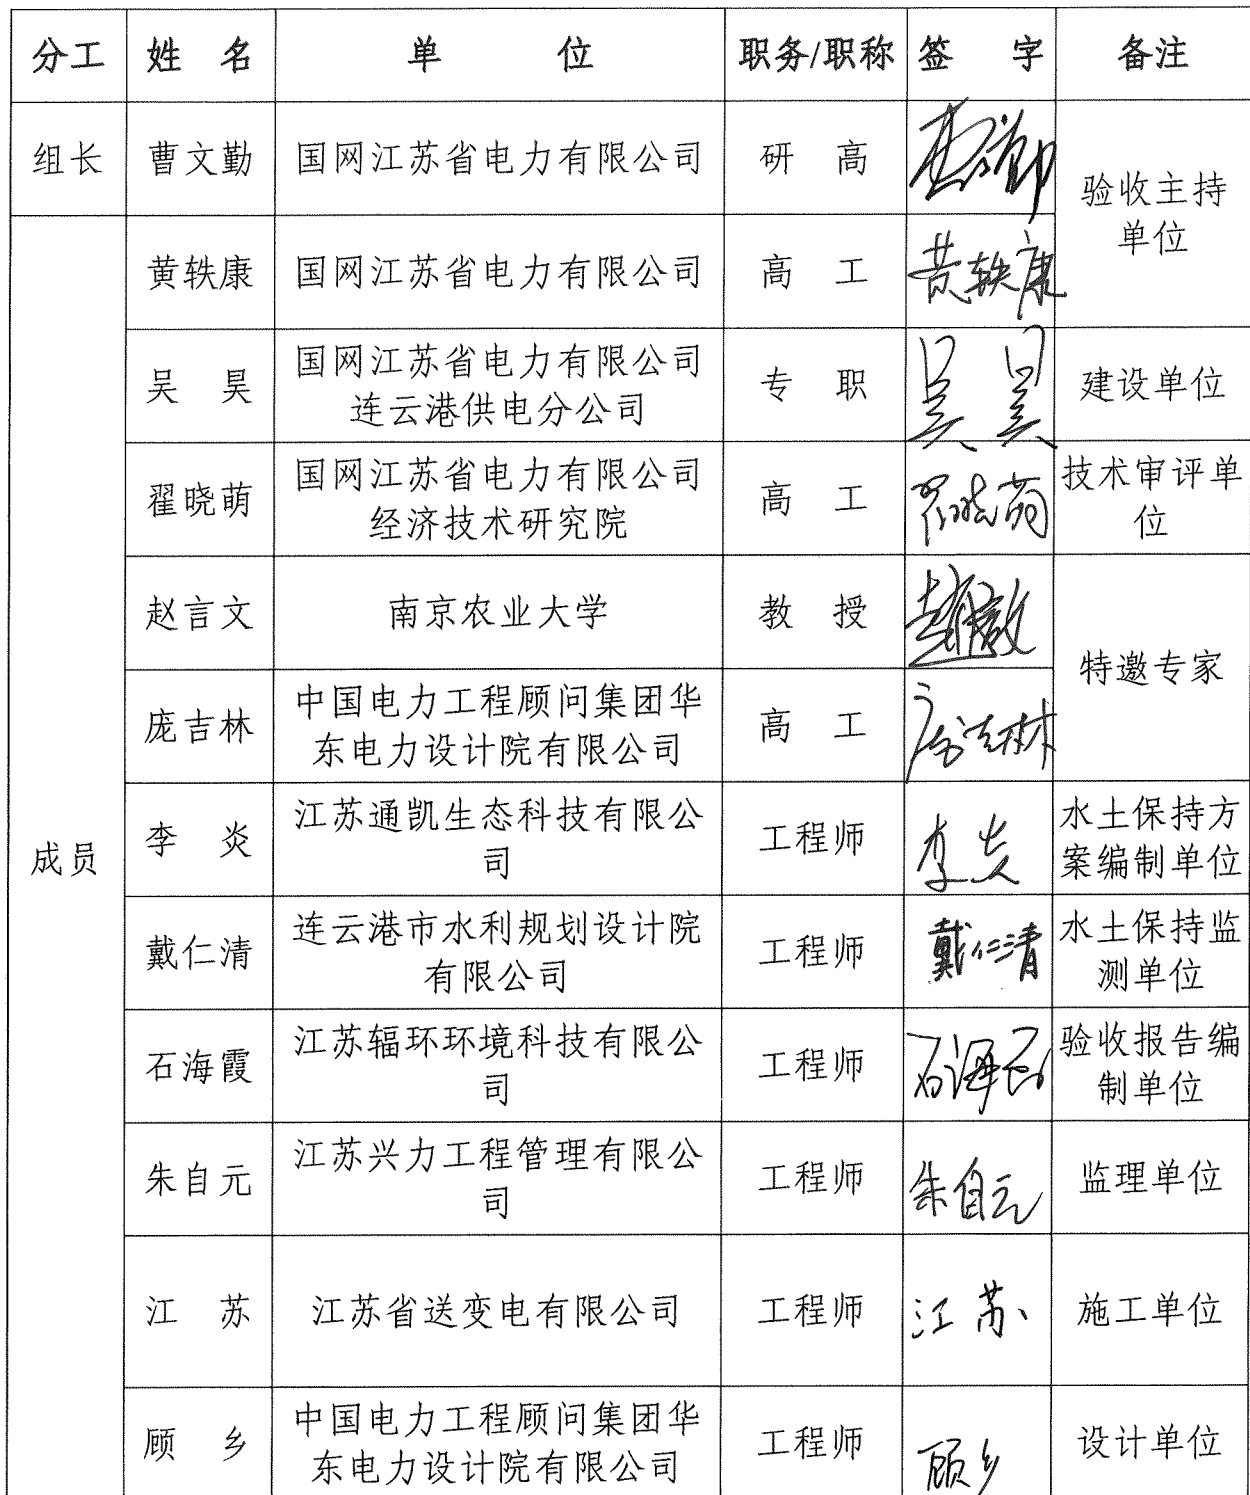 分工 姓 名 单 位 职务/职称 签 字 备注
组长 曹文勤 国网江苏省电力有限公司 研 高
验收主持
单位
成员
黄轶康 国网江苏省电力有限公司 高 工 黄轶康
吴 昊 国网江苏省电力有限公司
连云港供电分公司
专 职 吴 昊 建设单位
翟晓萌 国网江苏省电力有限公司
经济技术研究院
高 工 翟晓萌 技术审评单
位
赵言文 南京农业大学 教 授 赵言文
特邀专家
庞吉林 中国电力工程顾问集团华
东电力设计院有限公司
高 工 庞吉林
李 炎 江苏通凯生态科技有限公
司
工程师 李炎 水土保持方
案编制单位
戴仁清 连云港市水利规划设计院
有限公司
工程师 戴仁清 水土保持监
测单位
石海霞 江苏辐环环境科技有限公
司
工程师 石海霞 验收报告编
制单位
朱自元 江苏兴力工程管理有限公
司
工程师 朱自元 监理单位
江 苏 江苏省送变电有限公司 工程师 江苏 施工单位
顾 乡 中国电力工程顾问集团华
东电力设计院有限公司
工程师 顾乡 设计单位